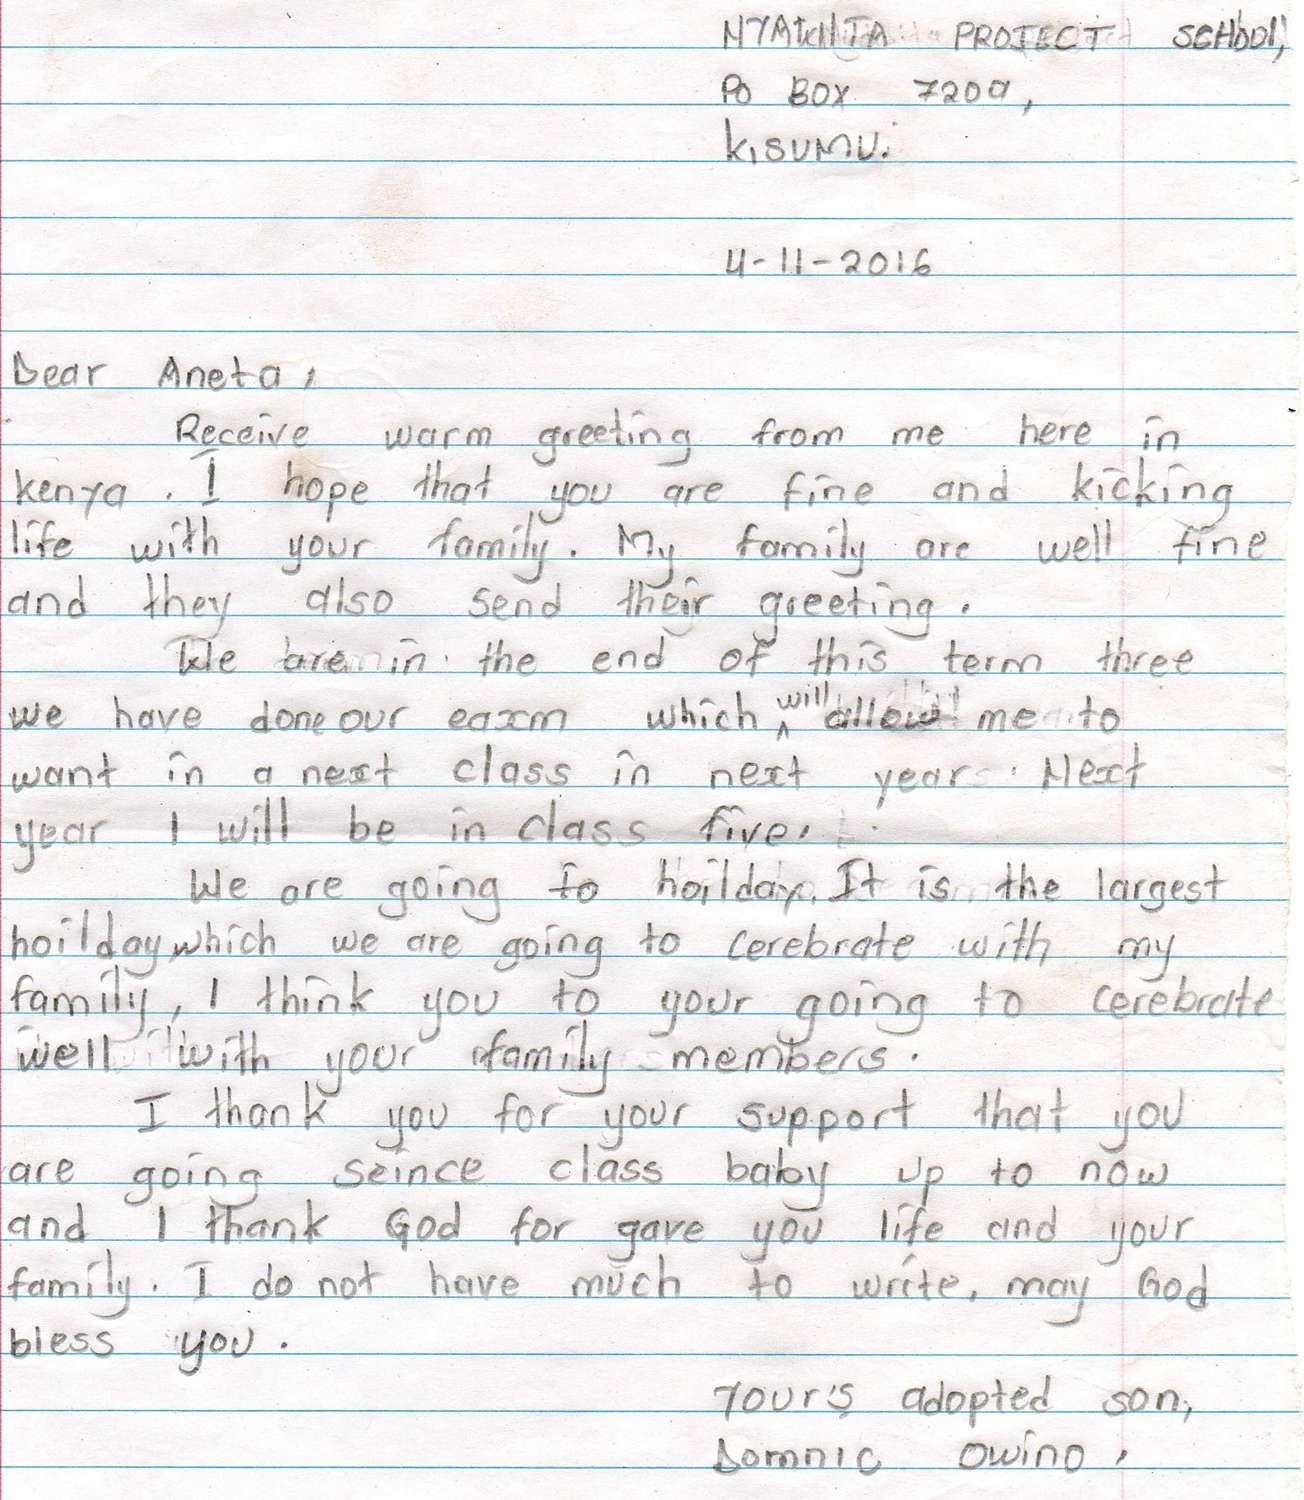 NYAKNJA PROJECT SCHOOL,
PO BOX 7209,
KISUMU.
4-11-2016
Dear Aneta,
Receive warm greeting from me here in
kenya. I hope that you are fine and kicking
life with your family. My family are well fine
and they also send their greeting.
We are in the end of this term three
we have done our eaxm which will allow me to
want in a next class in next year. Next
year I will be in class five.
We are going to hoilday. It is the largest
hoilday, which we are going to cerebrate with my
family, I think you to your going to cerebrate
well with your family members.
I thank you for your support that you
are going seince class baby up to now
and I thank God for gave you life and your
family. I do not have much to write. may God
bless you.
Your's adopted son,
Domnic Owino.